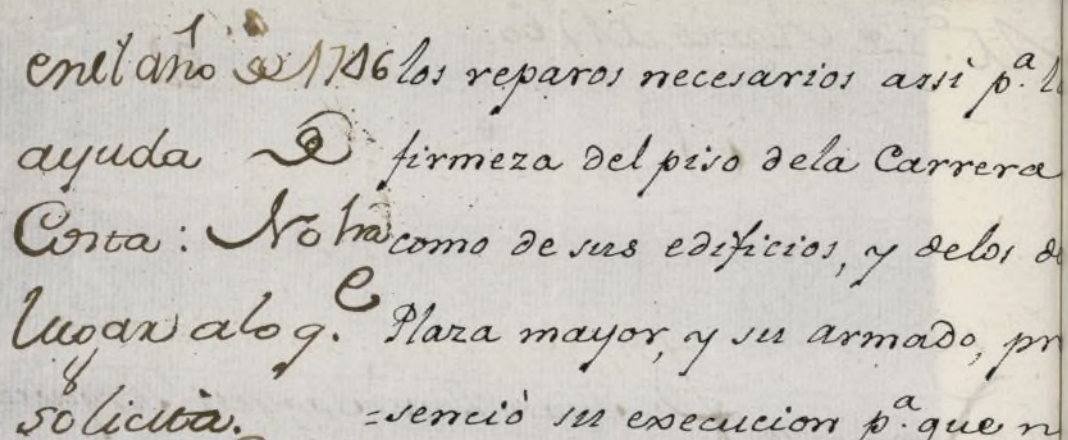 en el año de 1746 los reparos necesarios assi p.ª
ayuda de firmeza del piso dela Carrera
Costa: No ha como de sus edificios, y delos
lugar alo q.e Plaza mayor, y su armado, pr
solicita. =senció su execucion p.ª que n